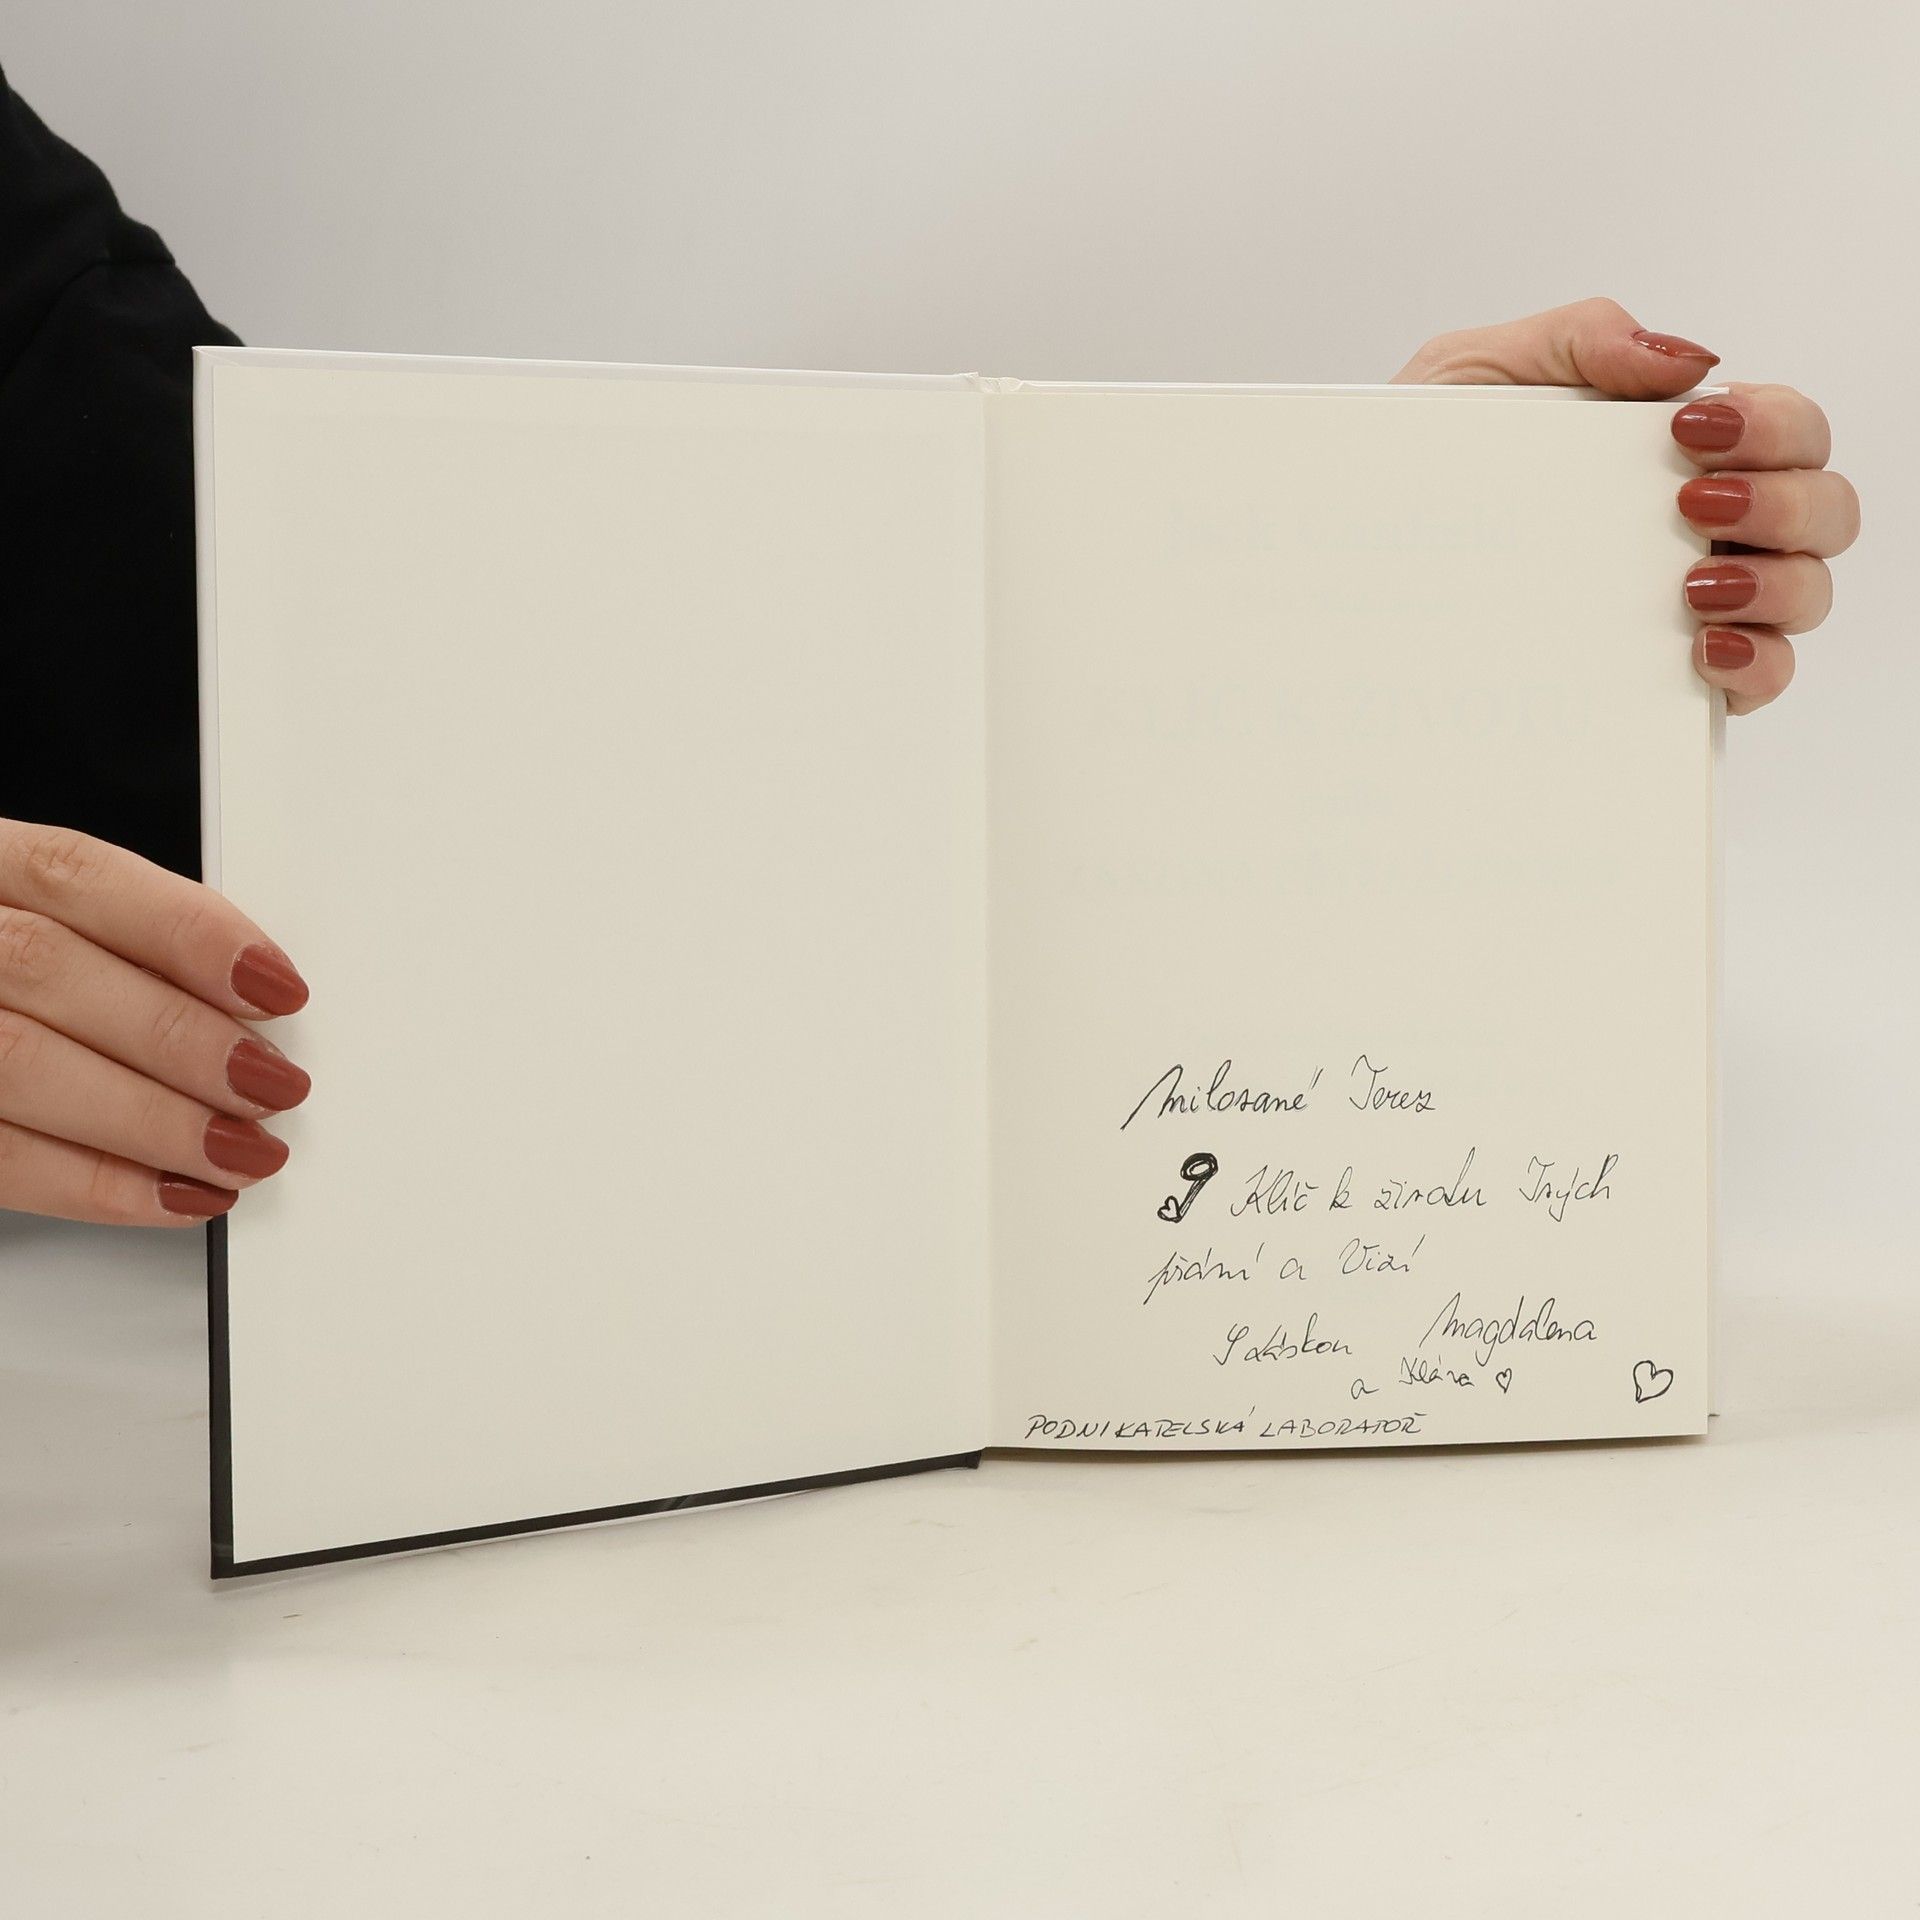 Milované Terez
Klíč k životu Tvých
přání a Vizí
S Láskou Magdalena
a Klára
PODNIKATELSKÁ LABORATOŘ